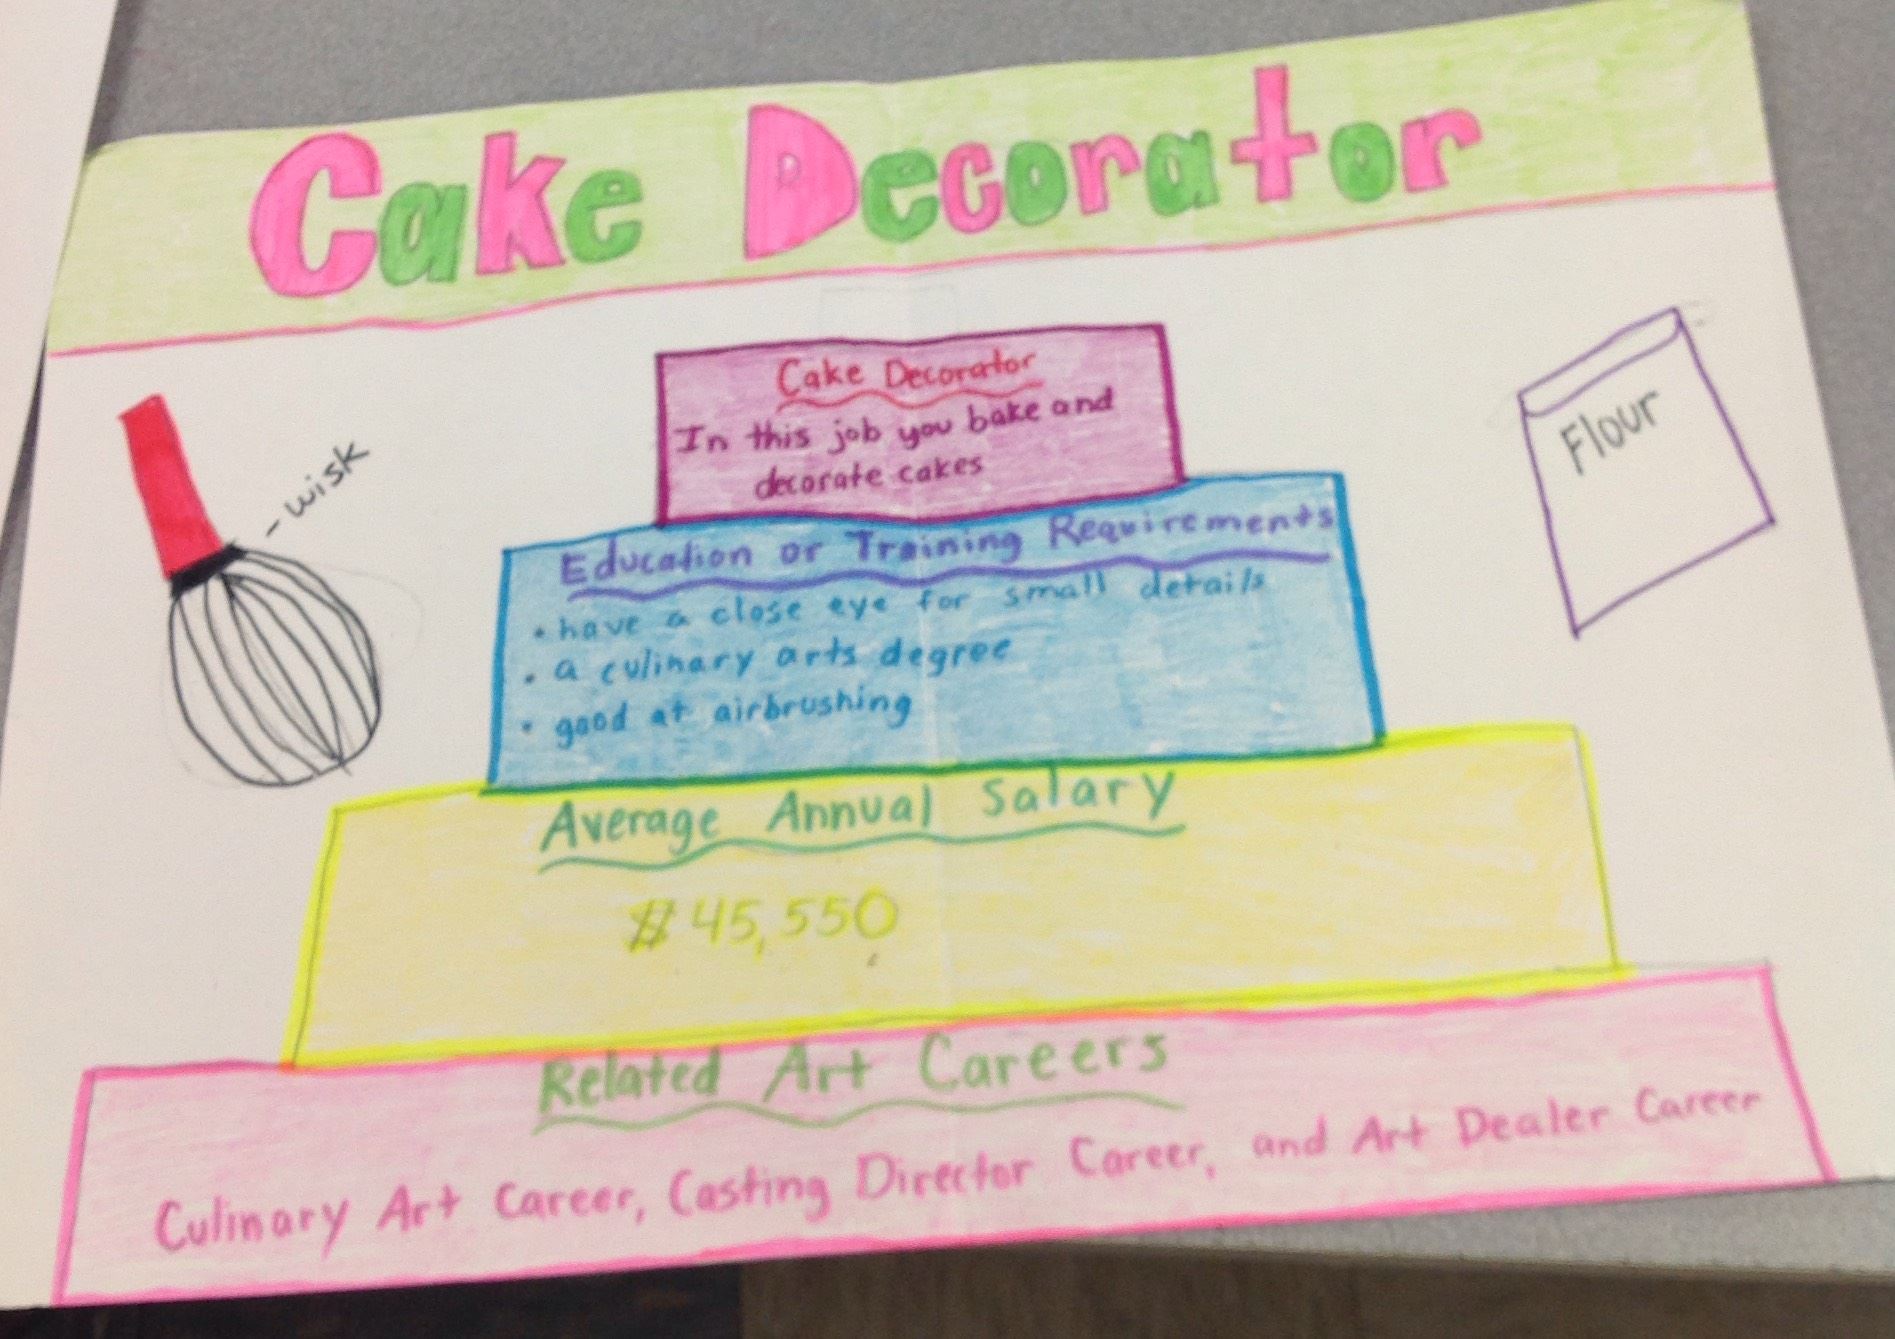 Cake Decorator
Cake Decorator
In this job you bake and
decorate cakes
- wisk
Flour
Education or Training Requirements
• have a close eye for small details
• a culinary arts degree
• good at airbrushing
Average Annual Salary
$45,550
Related Art Careers
Culinary Art Career, Casting Director Career, and Art Dealer Career